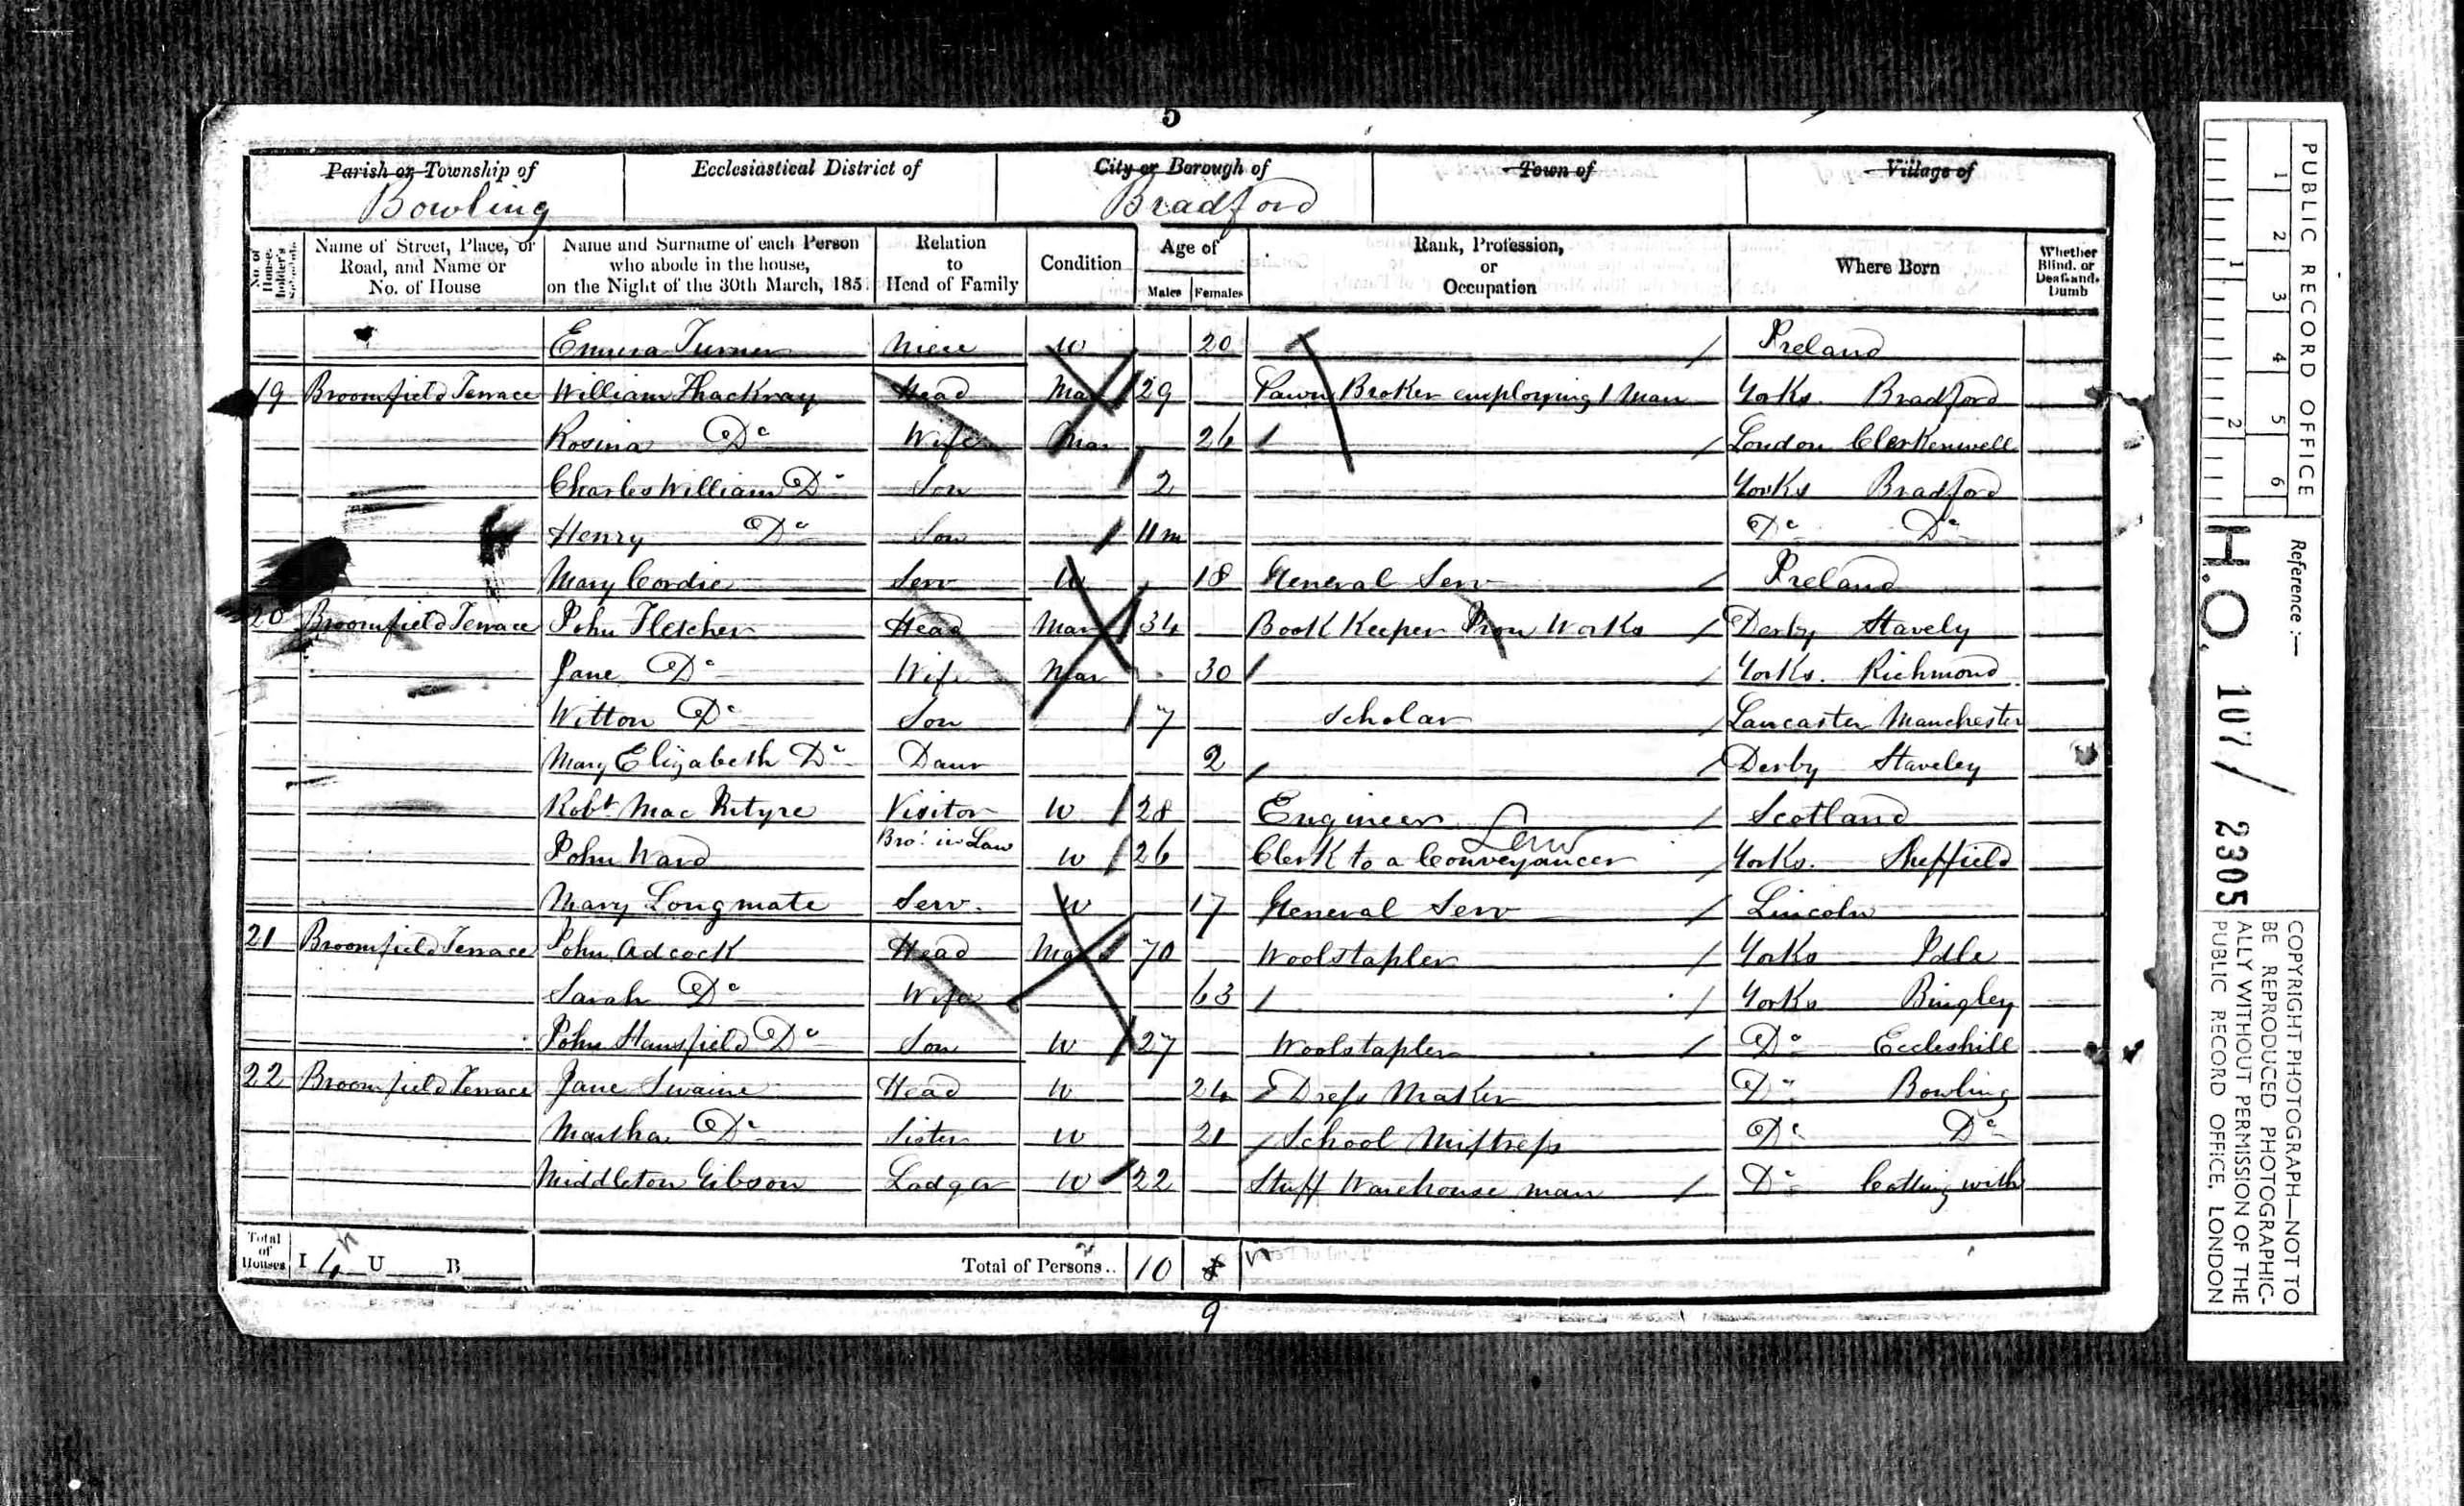 5
Parish or Township of Ecclesiastical District of City or Borough of Town of Village of
Bowling Bradford
No. of House-holder's Schedule Name of Street, Place, or Road, and Name or No. of House Name and Surname of each Person who abode in the house, on the Night of the 30th March, 185 Relation to Head of Family Condition Age of Males Females Rank, Profession, or Occupation Where Born Whether Blind, or Deaf-and-Dumb
Emma Turner Niece U 20 Ireland
19 Broomfield Terrace William Thackray Head Mar 29 Pawn Broker employing 1 Man Yorks. Bradford
Rosina Do Wife Mar 26 London Clerkenwell
Charles William Do Son 2 Yorks Bradford
Henry Do Son 11m Do Do
Mary Cordie Serv U 18 General Serv Ireland
20 Broomfield Terrace John Fletcher Head Mar 34 Book Keeper Iron Works Derby Stavely
Jane Do Wife Mar 30 Yorks. Richmond
Witton Do Son 7 Scholar Lancaster Manchester
Mary Elizabeth Do Daur 2 Derby Staveley
Robt Mac Intyre Visitor U 28 Engineer Scotland
John Ward Bro: in Law U 26 Clerk to a Conveyancer Law Yorks. Sheffield
Mary Longmate Serv. U 17 General Serv Lincoln
21 Broomfield Terrace John Adcock Head Mar 70 Woolstapler Yorks Idle
Sarah Do Wife 63 Yorks Bingley
John Hansfield Do Son U 27 Woolstapler Do Eccleshill
22 Broomfield Terrace Jane Swaine Head U 24 Dress Maker Do Bowling
Martha Do Sister U 21 School Mistress Do Do
Middleton Gibson Lodger U 22 Stuff Warehouse man Do Cotting with
Total of Houses I 4 U B Total of Persons.. 10 8
9
PUBLIC RECORD OFFICE
1 2 3 4 5 6
1 2
Reference :—
H.O. 107/2305
COPYRIGHT PHOTOGRAPH—NOT TO
BE REPRODUCED PHOTOGRAPHIC-
ALLY WITHOUT PERMISSION OF THE
PUBLIC RECORD OFFICE, LONDON